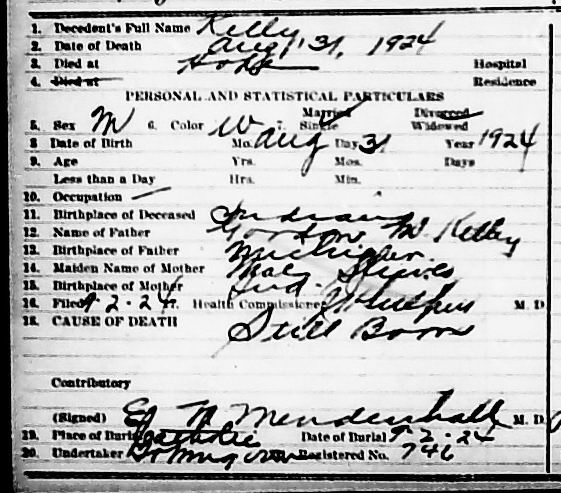 1. Decedent's Full Name Kelly
2. Date of Death Aug. 31, 1924
3. Died at Hope Hospital
4. Died at Residence
PERSONAL AND STATISTICAL PARTICULARS
Married Divorced
5. Sex M 6. Color W 7. Single Widowed
8 Date of Birth Mo. Aug Day 31 Year 1924
9. Age Yrs. Mos. Days
Less than a Day Hrs. Min.
10. Occupation —
11. Birthplace of Deceased Indiana
12. Name of Father Gordon M. Kelley
13. Birthplace of Father Michigan
14. Maiden Name of Mother
15. Birthplace of Mother Ind.
16. Filed 9-2-24 17. Health Commissioner M. D.
18. CAUSE OF DEATH Still Born
Contributory
(Signed) E. N. Mendenhall M. D.
19. Place of Burial Date of Burial 9-2-24
20. Undertaker Registered No. 746